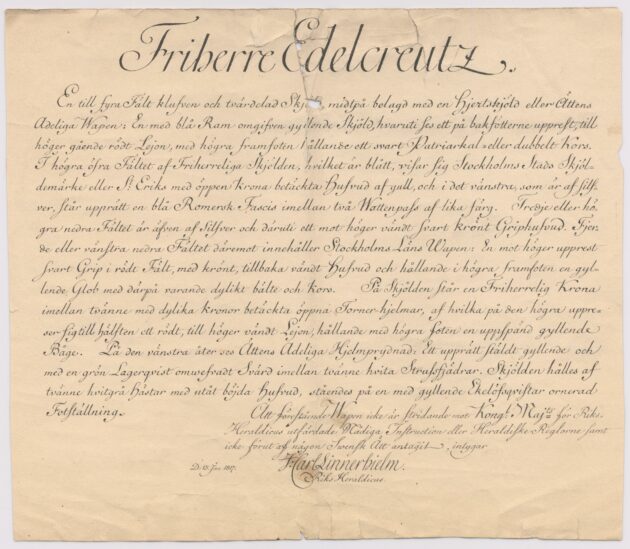 Friherre Edelcreutz.
En till fyra Fält klufven och tvärdelad Skjöld, midtpå belagd med en hjertskjöld eller Ättens
Adeliga Wapen: En med blå Ram omgifven gyllende Skjöld, hvaruti ses ett på bakfötterne upprest, till
höger gående rödt Lejon, med högra framfoten hållande ett svart Patriarkal- eller dubbelt kors.
I högra öfra Fältet af Friherreliga Skjölden, hvilket är blått, visar sig Stockholms Stads Skjöl-
demärke eller St Eriks med öppen krona betäckta Hufvud af guld, och i det vänstra, som är af silf-
ver, står upprätt en blå Romersk Fascis imellan två Wattenpass af lika färg. Tredje eller hö-
gra nedra Fältet är äfven af silfver och däruti ett mot höger vändt svart krönt Griphufvud. Fjer-
de eller vänstra nedra Fältet däremot innehåller Stockholms Läns Wapen: En mot höger upprest
svart Grip i rödt Fält, med krönt, tillbaka vändt Hufvud och hållande i högra framfoten en gyl-
lende Glob med därpå varande dylikt bälte och kors. På Skjölden står en Friherrelig Krona
imellan tvänne med dylika kronor betäckta öppna Torner-hjelmar, af hvilka på den högra uppre-
ser sig till hälften ett rödt, till höger vändt Lejon, hållande med högra foten en uppspänd gyllende
Båge. På den vänstra åter ses Ättens Adeliga Hjelmprydnad: Ett upprätt stäldt gyllende och
med en grön Lagerqvist omvefvadt Svärd imellan tvänne hvita Strussfjädrar. Skjölden hålles af
tvänne hvitgrå Hästar med utåt böjda Hufvud, ståendes på en med gyllende Ekelöfsqvistar ornerad
Fotställning.
Att förestående Wapen icke är stridande mot Kongl. Maj:ts för Riks
Heraldicus utfärdade Nådiga Instruction eller Heraldiske Reglorne samt
icke förut af någon Swensk Ätt antagit, intygar
Karl Linnerhielm.
Riks Heraldicus.